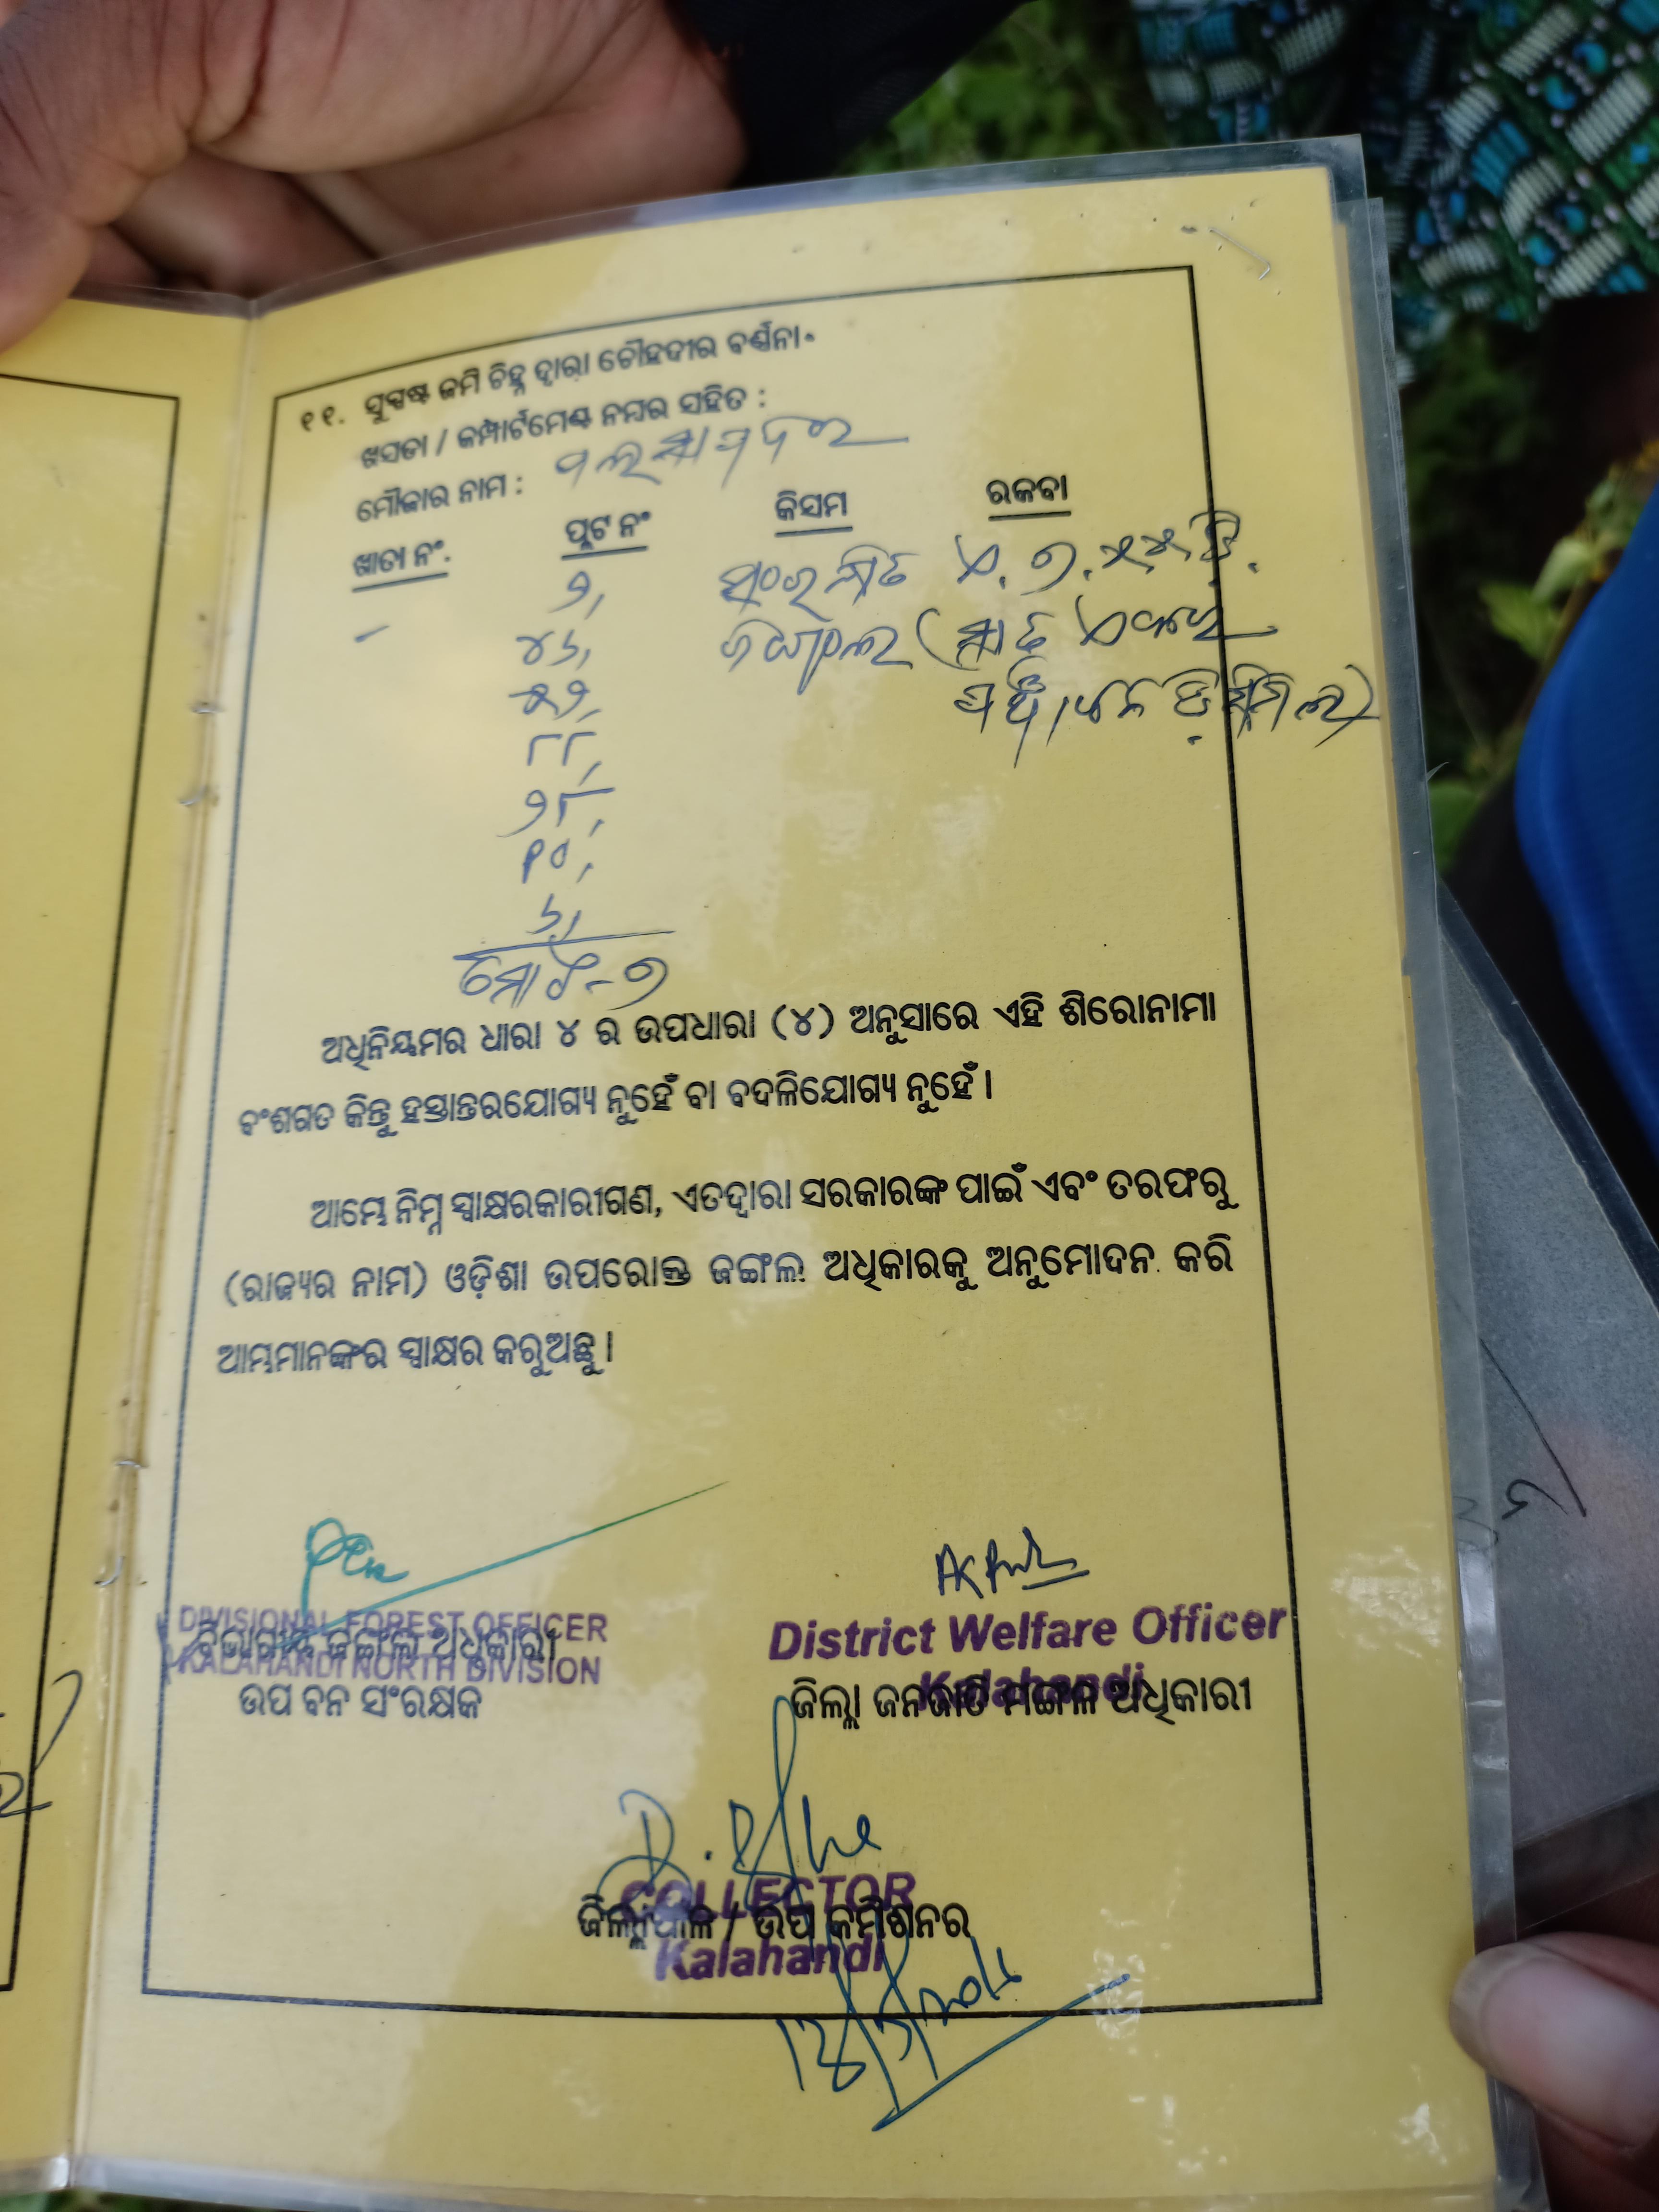 ୧୧. ସୁସ୍ପଷ୍ଟ ଜମି ଚିହ୍ନ ଦ୍ୱାରା ଚୌହଦୀର ବର୍ଣ୍ଣନା
ଖସଡା / କମ୍ପାର୍ଟମେଣ୍ଟ ନମ୍ବର ସହିତ :
ମୌଜାର ନାମ :
ଖାତା ନଂ. ପ୍ଲଟ ନଂ କିସମ ରକବା
୨, ସଂରକ୍ଷିତ ଏ. ୭.୫୫ ଡି.
– ୪୬, ଜଙ୍ଗଲ (ସାତ ଏକର
୫୨, ପଞ୍ଚାବନ ଡିସିମିଲ)
୮୮,
୨୮,
୧୦,
୬,
ମୋଟ - ୭
ଅଧିନିୟମର ଧାରା ୪ ର ଉପଧାରା (୪) ଅନୁସାରେ ଏହି ଶିରୋନାମା
ବଂଶଗତ କିନ୍ତୁ ହସ୍ତାନ୍ତରଯୋଗ୍ୟ ନୁହେଁ ବା ବଦଳିଯୋଗ୍ୟ ନୁହେଁ ।
ଆମ୍ଭେ ନିମ୍ନ ସ୍ୱାକ୍ଷରକାରୀଗଣ, ଏତଦ୍ୱାରା ସରକାରଙ୍କ ପାଇଁ ଏବଂ ତରଫରୁ
(ରାଜ୍ୟର ନାମ) ଓଡ଼ିଶା ଉପରୋକ୍ତ ଜଙ୍ଗଲ ଅଧିକାରକୁ ଅନୁମୋଦନ କରି
ଆମ୍ଭମାନଙ୍କର ସ୍ୱାକ୍ଷର କରୁଅଛୁ ।
DIVISIONAL FOREST OFFICER
ବିଭାଗୀୟ ଜଙ୍ଗଲ ଅଧିକାରୀ
KALAHANDI NORTH DIVISION
ଉପ ବନ ସଂରକ୍ଷକ
District Welfare Officer
Kalahandi
ଜିଲ୍ଲା ଜନଜାତି ମଙ୍ଗଳ ଅଧିକାରୀ
COLLECTOR
ଜିଲ୍ଲାପାଳ / ଉପ କମିଶନର
Kalahandi